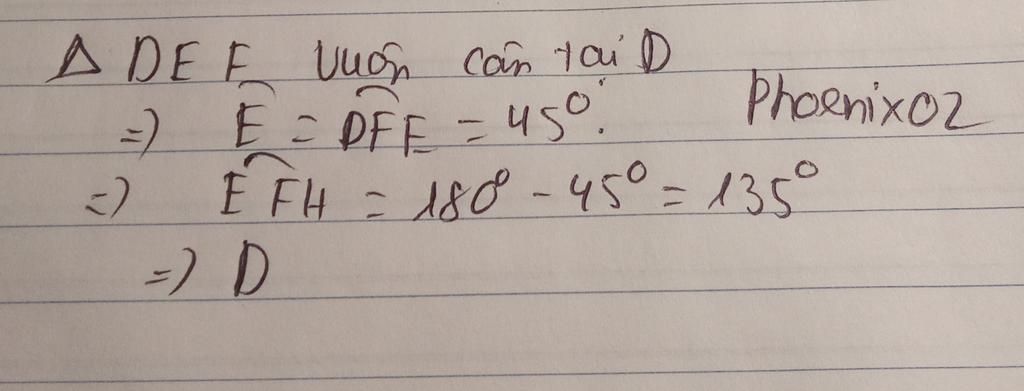 Δ DEF vuông cân tại D
=) Ê = D̂FE = 45°. Phoenix02
=) ÊFH = 180° - 45° = 135°
=) D